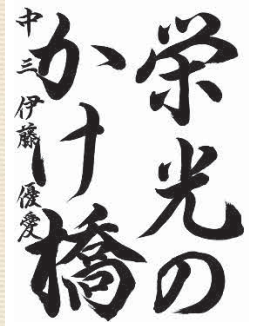 栄光の
かけ橋
中三 伊藤 優愛